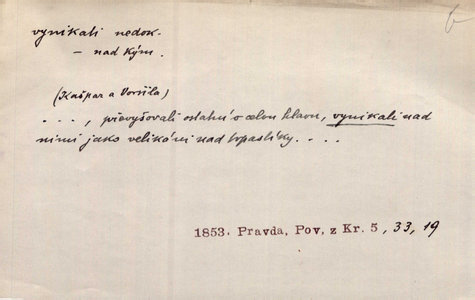 vynikati nedok.
– nad kým.
(Kašpar a Voršila)
. . . , převyšovali ostatní o celou hlavu, vynikali nad
nimi jako velikáni nad trpaslíky. . . .
1853. Pravda, Pov. z Kr. 5, 33, 19